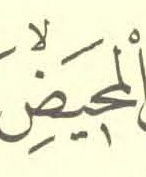 الْمَحٖيضِۙ